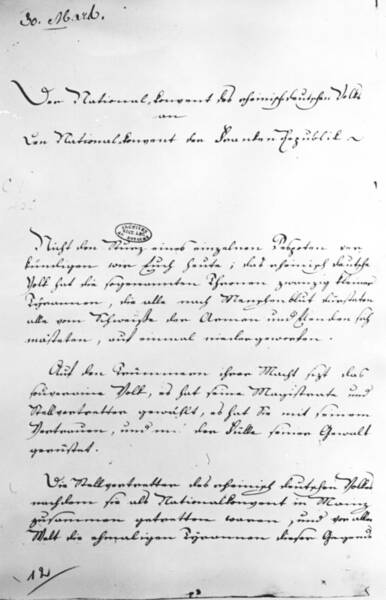 30. Merch.
Der National-konvent des rheinischdeutschen Volks
an
den National-konvent der Franken Republik
Nicht den Sturz eines einzelnen Despoten ver
kündigen wir Euch heute; das rheinisch deutsche
Volk hat die sogenannten Thronen zwanzig kleiner
Tyrannen, die alle nach Menschenblut dürsteten
alle vom Schweiße der Armen und Elenden sich
mästeten, auf einmal niedergeworfen.
Auf den Trümmern ihrer Macht sizt das
souveraine Volk, es hat seine Magistrate und
Stellvertretter gewählt, es hat Sie mit seinem
Vertrauen, und mit der Fülle seiner Gewalt
gerüstet.
Die Stellvertretter des rheinisch deutschen Volkes
nachdem sie als Nationalkonvent in Mainz
zusammen getretten waren, und vor aller
Welt die ehmaligen Tyrannen dieser Gegend
12